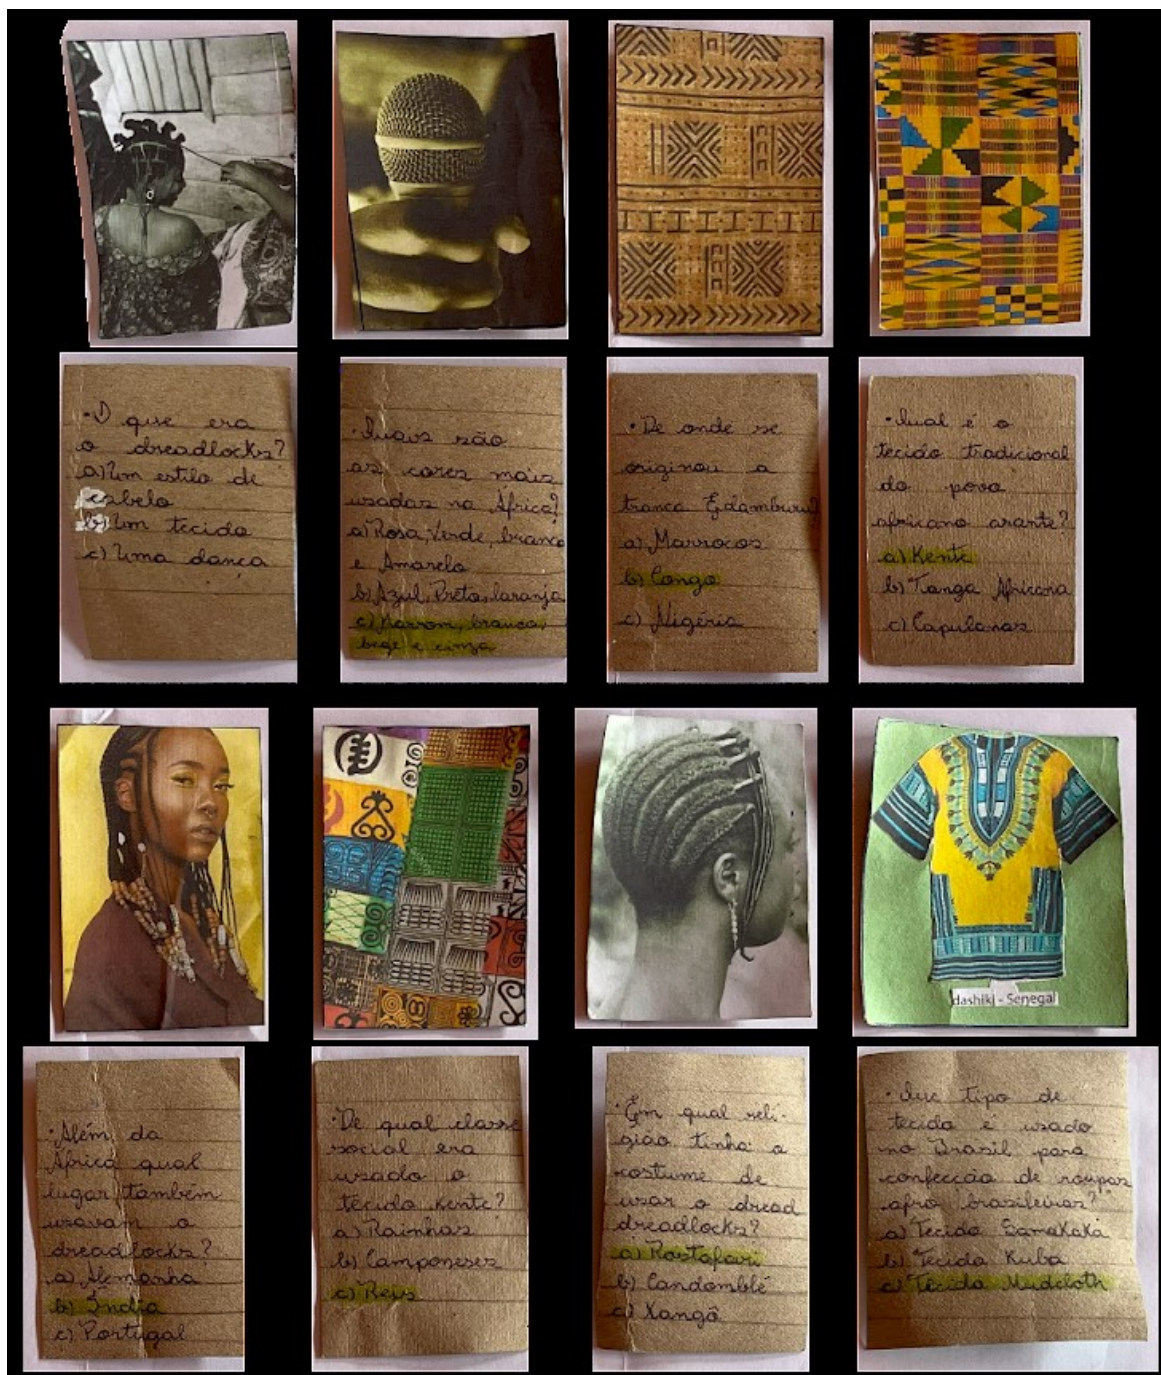 • O que era
o dreadlocks?
a) Um estilo de
cabelo
b) Um tecido
c) Uma dança
• Quais são
as cores mais
usadas na África?
a) Rosa, Verde, branco
e Amarelo
b) Azul, Preto, laranja
c) Marrom, branca,
bege e cinza
• De onde se
originou a
tranca Edamburu?
a) Marrocos
b) Congo
c) Nigéria
• Qual é o
tecido tradicional
do povo
africano arante?
a) Kente
b) Tanga Africana
c) Capulanas
dashiki - Senegal
• Além da
África qual
lugar também
usavam o
dreadlocks?
a) Alemanha
b) Índia
c) Portugal
• De qual classe
social era
usado o
tecido Kente?
a) Rainhas
b) Camponeses
c) Reis
• Em qual reli-
gião tinha o
costume de
usar o dread
dreadlocks?
a) Rastafari
b) Candomblé
c) Xangô
• Que tipo de
tecido é usado
no Brasil para
confecção de roupas
afro brasileiras?
a) Tecido Samakaka
b) Tecido Kuba
c) Tecido Mudcloth